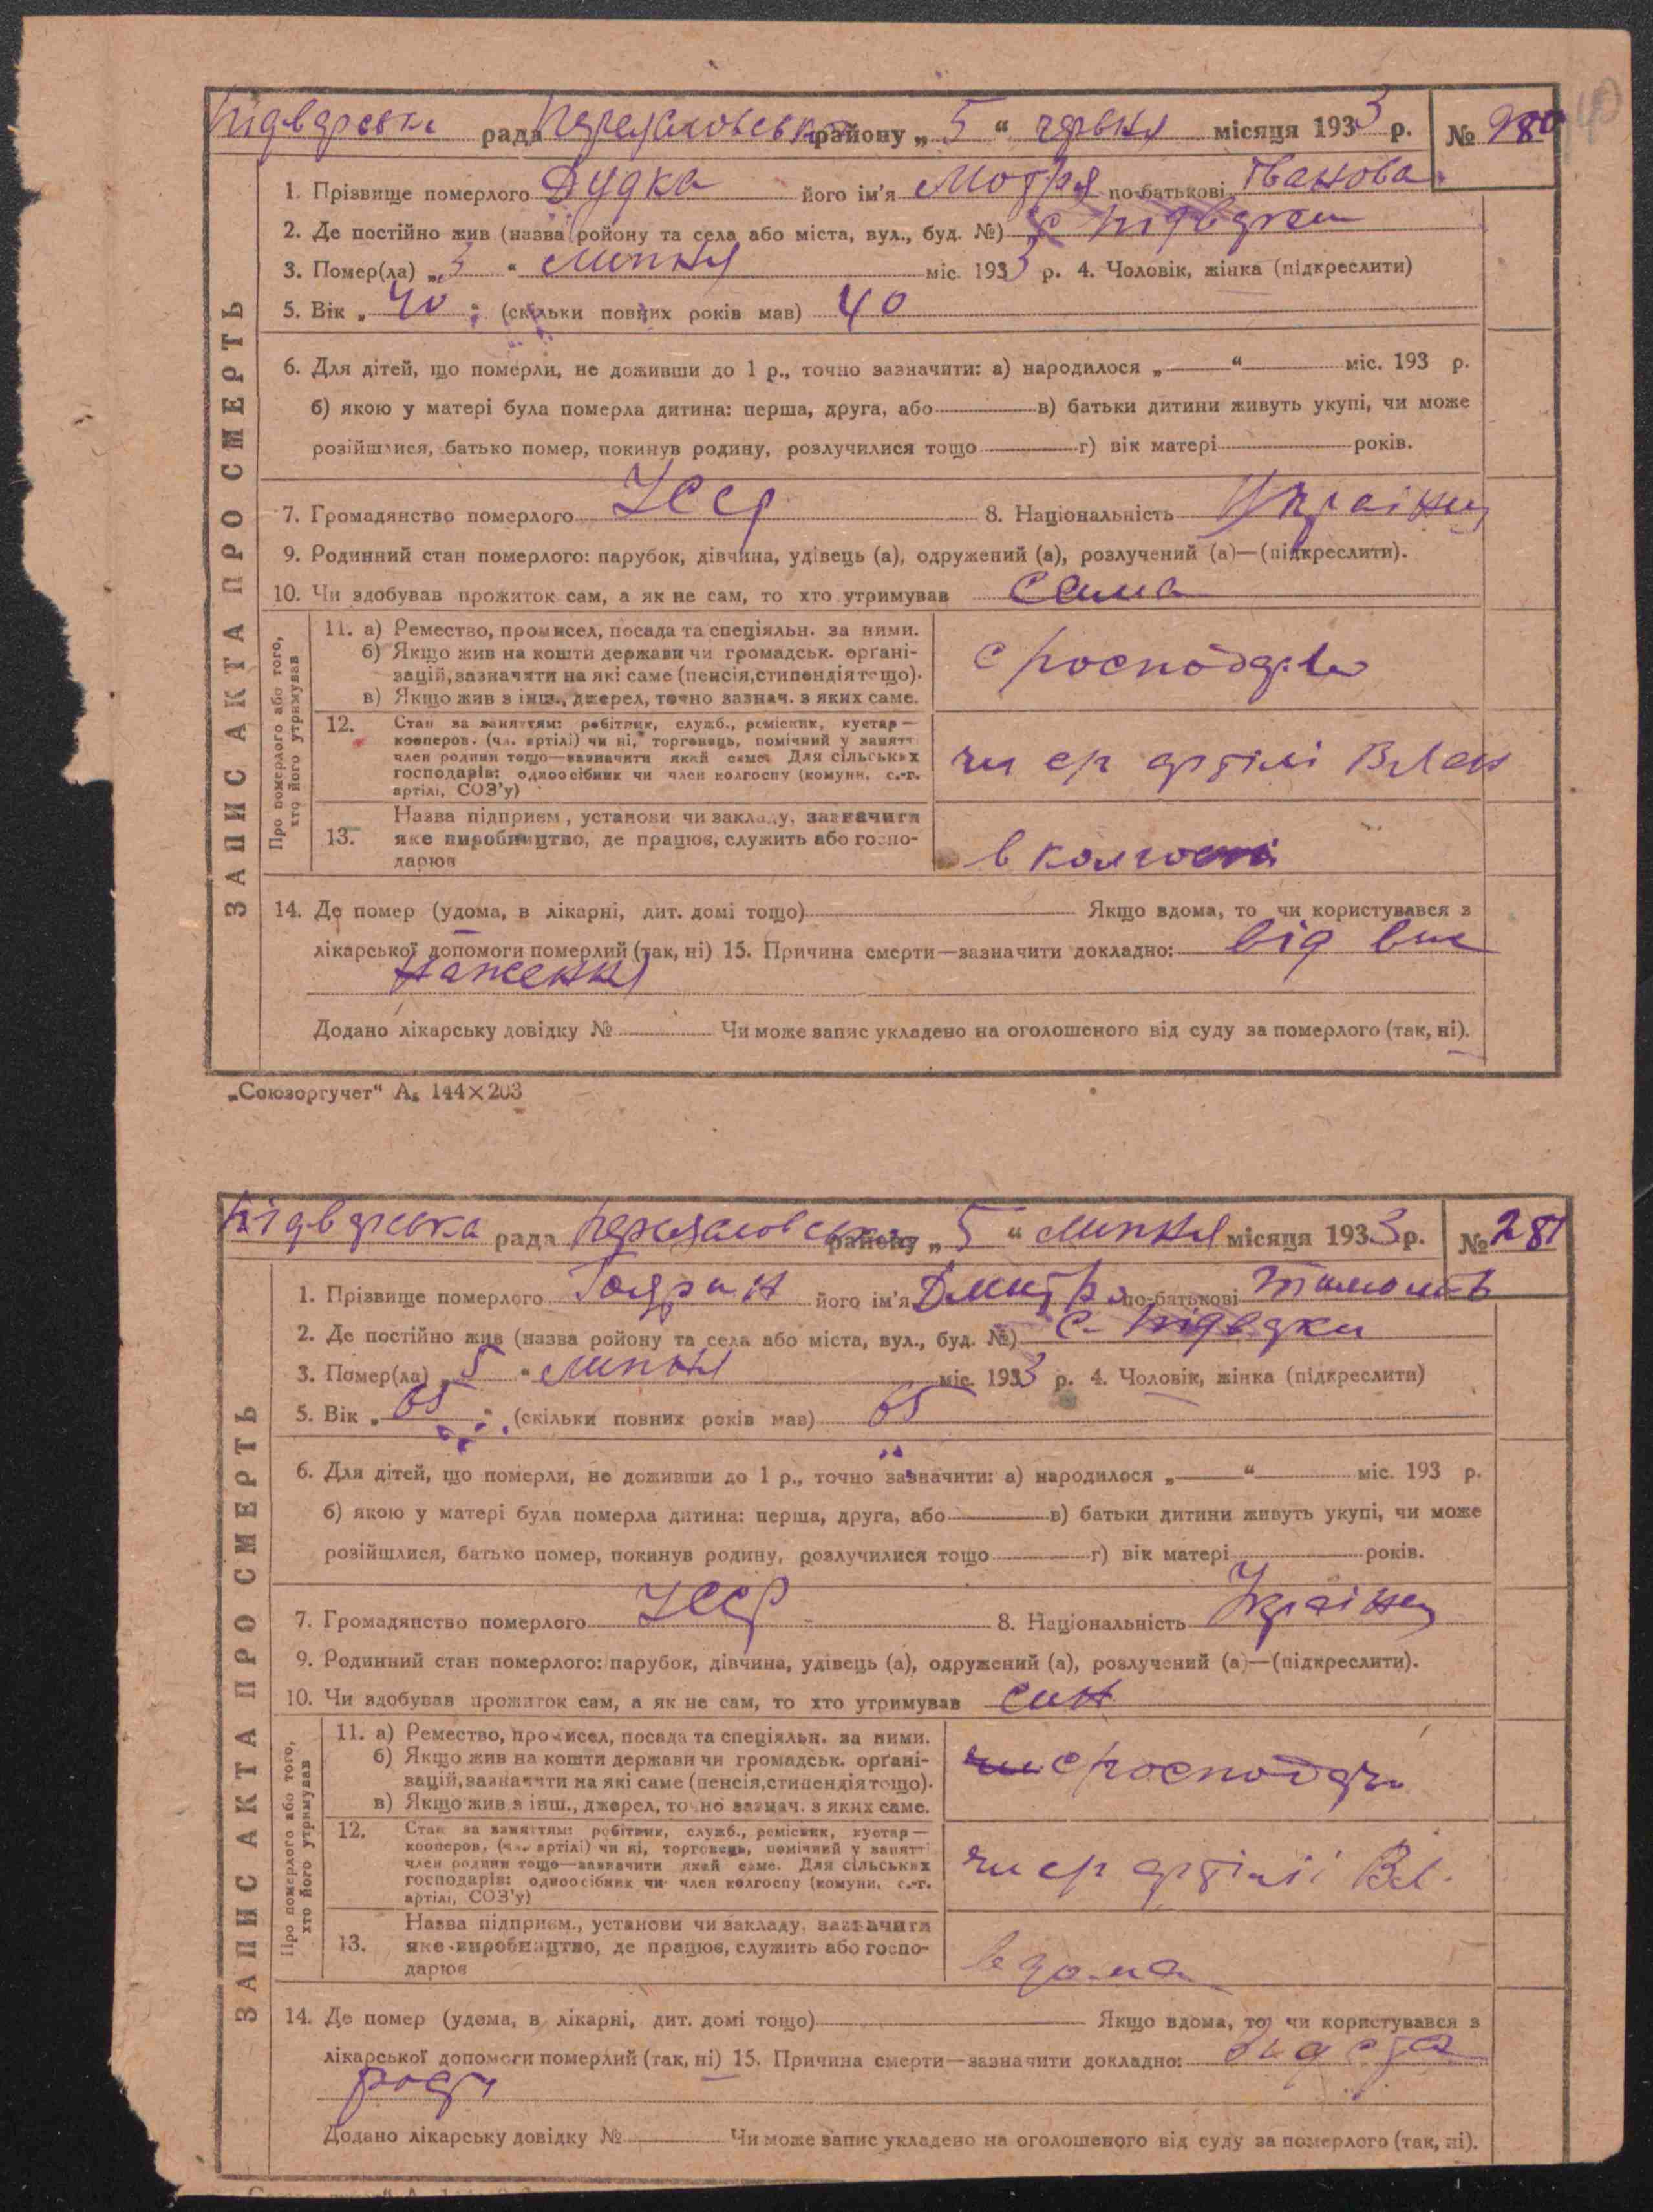 Підварська рада Переяловської району „ 5 “ червня місяця 1933 р. № 280
1. Прізвище померлого Дудка його ім'я Мотря по-батькові Іванова
2. Де постійно жив (назва ройону та села або міста, вул., буд. №) с Підварки
3. Помер(ла) „ 3 “ липня міс. 1933 р. 4. Чоловік, жінка (підкреслити)
5. Вік „ 40 “ (скільки повних років мав) 40
6. Для дітей, що померли, не доживши до 1 р., точно зазначити: а) народилося „ “ міс. 193 р.
б) якою у матері була померла дитина: перша, друга, або в) батьки дитини живуть укупі, чи може
розійшлися, батько помер, покинув родину, розлучилися тощо г) вік матері років.
7. Громадянство померлого Усср 8. Національність Украінец
9. Родинний стан померлого: парубок, дівчина, удівець (а), одружений (а), розлучений (а)—(підкреслити).
10. Чи здобував прожиток сам, а як не сам, то хто утримував сама
ЗАПИС АКТА ПРО СМЕРТЬ
Про померлого або того, хто його утримував
11. а) Ремество, промисел, посада та спеціяльн. за ними.
б) Якщо жив на кошти держави чи громадськ. органі-
зацій, зазначити на які саме (пенсія, стипендія тощо).
в) Якщо жив з інш., джерел, точно зазнач. з яких саме.
12. Стан за заняттям: робітник, служб., ремісник, кустар—
кооперов. (чл. артілі) чи ні, торговець, помічний у занятт
член родини тощо—зазначити який саме. Для сільських
господарів: одноосібник чи член колгоспу (комуни, с.-г.
артілі, СОЗ'у)
артілі
13. Назва підприєм., установи чи закладу, зазначити
яке виробництво, де працює, служить або госпо-
дарює
в колгоспі
14. Де помер (удома, в лікарні, дит. домі тощо) Якщо вдома, то чи користувався з
лікарської допомоги померлий (так, ні) 15. Причина смерти—зазначити докладно: від вис
наження
Додано лікарську довідку № Чи може запис укладено на оголошеного від суду за померлого (так, ні).
„Союзоргучет“ А₅ 144×203
Підварська рада Переяловської району „ 5 “ липня місяця 1933 р. № 281
1. Прізвище померлого його ім'я Дмитро по-батькові
2. Де постійно жив (назва ройону та села або міста, вул., буд. №) с- Підварки
3. Помер(ла) „ 5 “ липня міс. 1933 р. 4. Чоловік, жінка (підкреслити)
5. Вік „ 65 “ (скільки повних років мав) 65
6. Для дітей, що померли, не доживши до 1 р., точно зазначити: а) народилося „ “ міс. 193 р.
б) якою у матері була померла дитина: перша, друга, або в) батьки дитини живуть укупі, чи може
розійшлися, батько помер, покинув родину, розлучилися тощо г) вік матері років.
7. Громадянство померлого Усср 8. Національність Украінец
9. Родинний стан померлого: парубок, дівчина, удівець (а), одружений (а), розлучений (а)—(підкреслити).
10. Чи здобував прожиток сам, а як не сам, то хто утримував син
ЗАПИС АКТА ПРО СМЕРТЬ
Про померлого або того, хто його утримував
11. а) Ремество, промисел, посада та спеціяльн. за ними.
б) Якщо жив на кошти держави чи громадськ. органі-
зацій, зазначити на які саме (пенсія, стипендія тощо).
в) Якщо жив з інш., джерел, точно зазнач. з яких саме.
12. Стан за заняттям: робітник, служб., ремісник, кустар—
кооперов. (чл. артілі) чи ні, торговець, помічний у занятт
член родини тощо—зазначити який саме. Для сільських
господарів: одноосібник чи член колгоспу (комуни, с.-г.
артілі, СОЗ'у)
артілі
13. Назва підприєм., установи чи закладу, зазначити
яке виробництво, де працює, служить або госпо-
дарює
вдома
14. Де помер (удома, в лікарні, дит. домі тощо) Якщо вдома, то чи користувався з
лікарської допомоги померлий (так, ні) 15. Причина смерти—зазначити докладно:
Додано лікарську довідку № Чи може запис укладено на оголошеного від суду за померлого (так, ні).